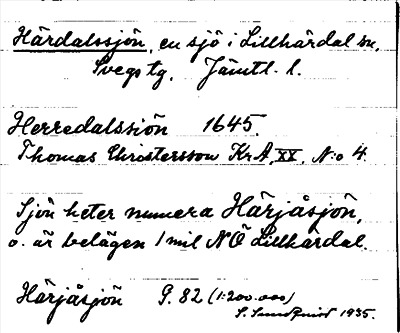 Härdalssjön, en sjö i Lillhärdal sn,
Svegs tg. Jämtl. l.
Herredalssiön 1645.
Thomas Christersson KrA, XX, N:o 4.
Sjön heter numera Härjåsjön,
o. är belägen 1 mil NÖ Lillhärdal.
Härjåsjön G. 82 (1:200.000)
S. Sundquist 1935.